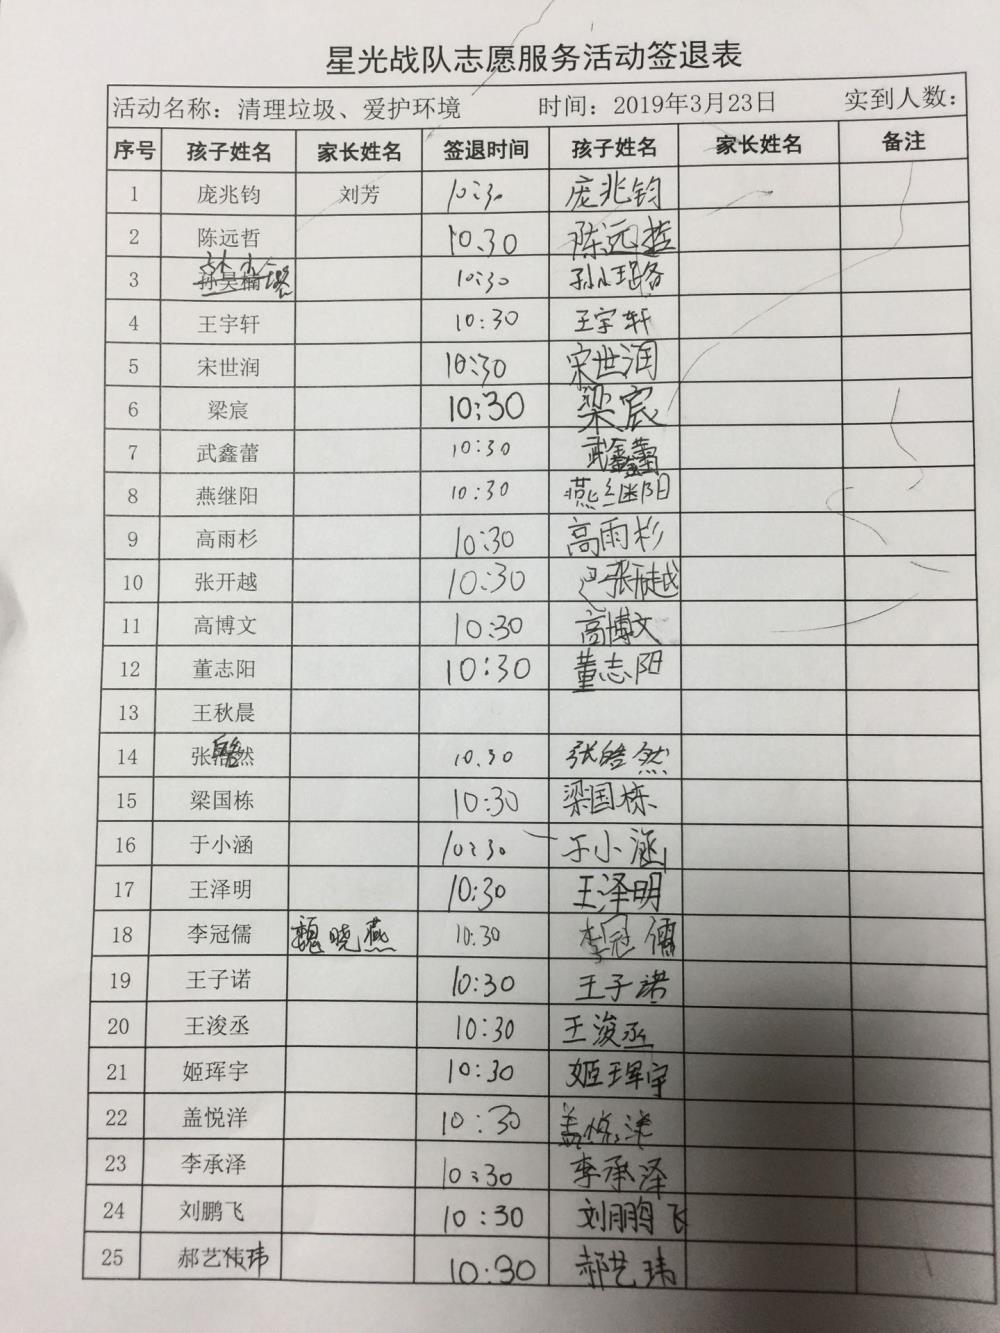 星光战队志愿服务活动签退表
活动名称：清理垃圾、爱护环境 时间：2019年3月23日 实到人数：
序号 孩子姓名 家长姓名 签退时间 孩子姓名 家长姓名 备注
1 庞兆钧 刘芳 10:30 庞兆钧
2 陈远哲 10.30 陈远哲
3 孙昊楠 10:30
4 王宇轩 10:30 王宇轩
5 宋世润 10:30 宋世润
6 梁宸 10:30 梁宸
7 武鑫蕾 10:30 武鑫蕾
8 燕继阳 10:30 燕继阳
9 高雨杉 10:30 高雨杉
10 张开越 10:30 张开越
11 高博文 10:30 高博文
12 董志阳 10:30 董志阳
13 王秋晨
14 张皓然 10.30 张皓然
15 梁国栋 10:30 梁国栋
16 于小涵 10:30 于小涵
17 王泽明 10:30 王泽明
18 李冠儒 魏晓燕 10:30 李冠儒
19 王子诺 10:30 王子诺
20 王浚丞 10:30 王浚丞
21 姬珲宇 10:30 姬珲宇
22 盖悦洋 10:30 盖悦洋
23 李承泽 10:30 李承泽
24 刘鹏飞 10:30 刘鹏飞
25 郝艺伟玮 10:30 郝艺玮